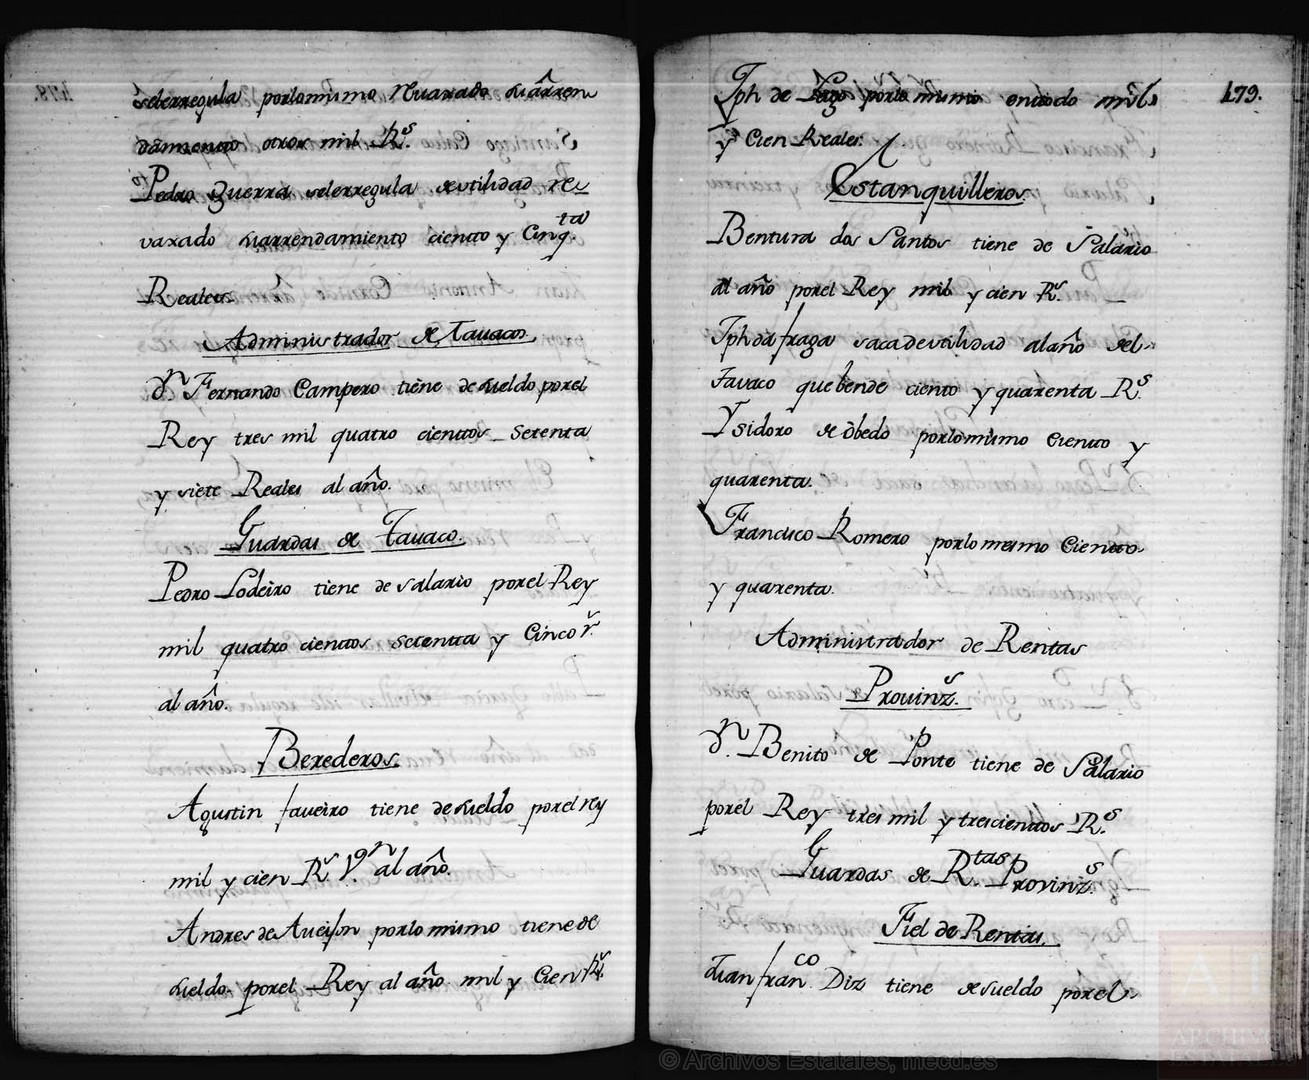 selerregula porlomismo Rvaxado suarren
damiento otros mil R.s
Pedro Guerra selerregula deutilidad re
vaxado suarrendamiento ciento y Cinq.ta
Reales.
Administrador de Tavacos.
d.n Fernando Campero tiene desueldo porel
Rey tres mil quatro cientos Setenta
y siete Reales al año.
Guardas de Tavaco.
Pedro Lodeiro tiene de salario porel Rey
mil quatro cientos setenta y Cinco r.s
al año.
Berederos.
Agustin faveiro tiene desueldo porel rey
mil y cien R.s V.on al año.
Andres de Aueison porlo mismo tiene de
sueldo porel Rey al año mil y Cien R.s
179.
Jph de Lago porlo mismo entodo mil
y Cien Reales.
Estanquilleros.
Bentura dos Santos tiene de Salario
al año porel Rey mil y cien R.s
Jph da fraga saca deutilidad alaño del
tavaco que bende ciento y quarenta R.s
Ysidoro de obedo porlomismo Ciento y
quarenta.
Francisco Romero porlo mesmo Ciento
y quarenta.
Administrador de Rentas
Provinz.s
d.n Benito de Ponte tiene de Salario
porel Rey tres mil y trescientos R.s
Guardas de R.tas Provinz.s
Fiel de Rentas.
Juan fran.co Diz tiene desueldo porel
© Archivos Estatales, mecd.es
ARCHIVOS
ESTATALES